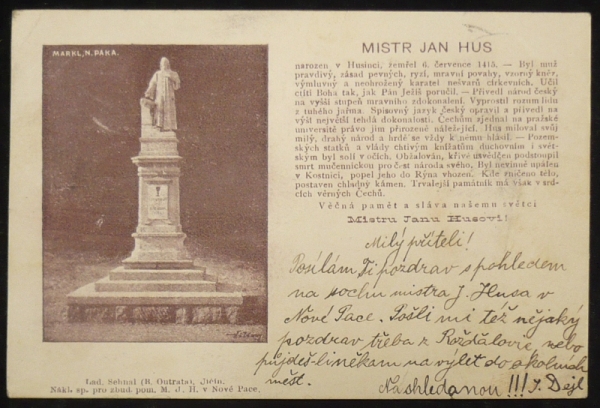 MARKL, N. PAKA.
MISTR JAN HUS
narozen v Husinci, zemřel 6. července 1415. — Byl muž
pravdivý, zásad pevných, ryzí, mravní povahy, vzorný kněz,
výmluvný a neohrožený karatel nešvarů církevních. Učil
ctíti Boha tak, jak Pán Ježíš poručil. — Přivedl národ český
na vyšší stupeň mravního zdokonalení. Vyprostil rozum lidu
z tuhého jařma. Spisovný jazyk český opravil a přivedl na
výši největší tehdá dokonalosti. Čechům zjednal na pražské
universitě právo jim přirozeně náležející. Hus miloval svůj
milý, drahý národ a hrdě se vždy k němu hlásil. — Pozem-
ských statků a vlády chtivým knížatům duchovním i svět-
ským byl solí v očích. Obžalován, křivě usvědčen podstoupil
smrt mučennickou pro čest národa svého. Byl nevinně upálen
v Kostnici, popel jeho do Rýna vhozen. Kde mučeno tělo,
postaven chladný kámen. Trvalejší památník má však v srd-
cích věrných Čechů.
Věčná paměť a sláva našemu světci
Mistru Janu Husovi!
Milý příteli!
Posílám Ti pozdrav s pohledem
na sochu mistra J. Husa v
Nové Pace. Pošli mi též nějaký
pozdrav třeba z Rožďalovic, nebo
půjdeš-li někam na výlet do okolních
měst.
Na shledanou!!! J. Dejl
Lad. Sehnal (B. Outrata), Jičín.
Nákl. sp. pro zbud. pom. M. J. H. v Nové Pace.